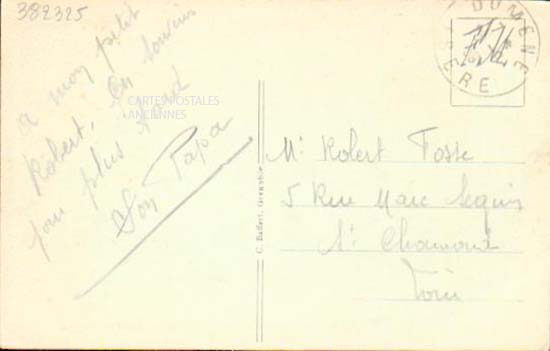 382325
a mon petit
Robert, En souvenir
pour plus tard
Son Papa
CARTES POSTALES
ANCIENNES
C. Baffert, Grenoble
DOMENE
ISERE
Mr Robert Fosse
5 Rue Marc Seguin
St Chamond
Loire